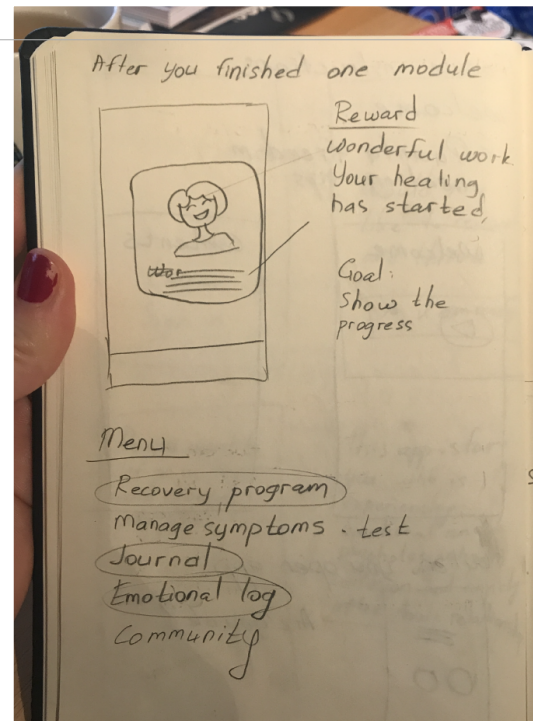 After you finished one module
Reward
Wonderful work
Your healing
has started
Goal:
Show the
progress
Menu
Recovery program
Manage symptoms . test
Journal
Emotional log
Community